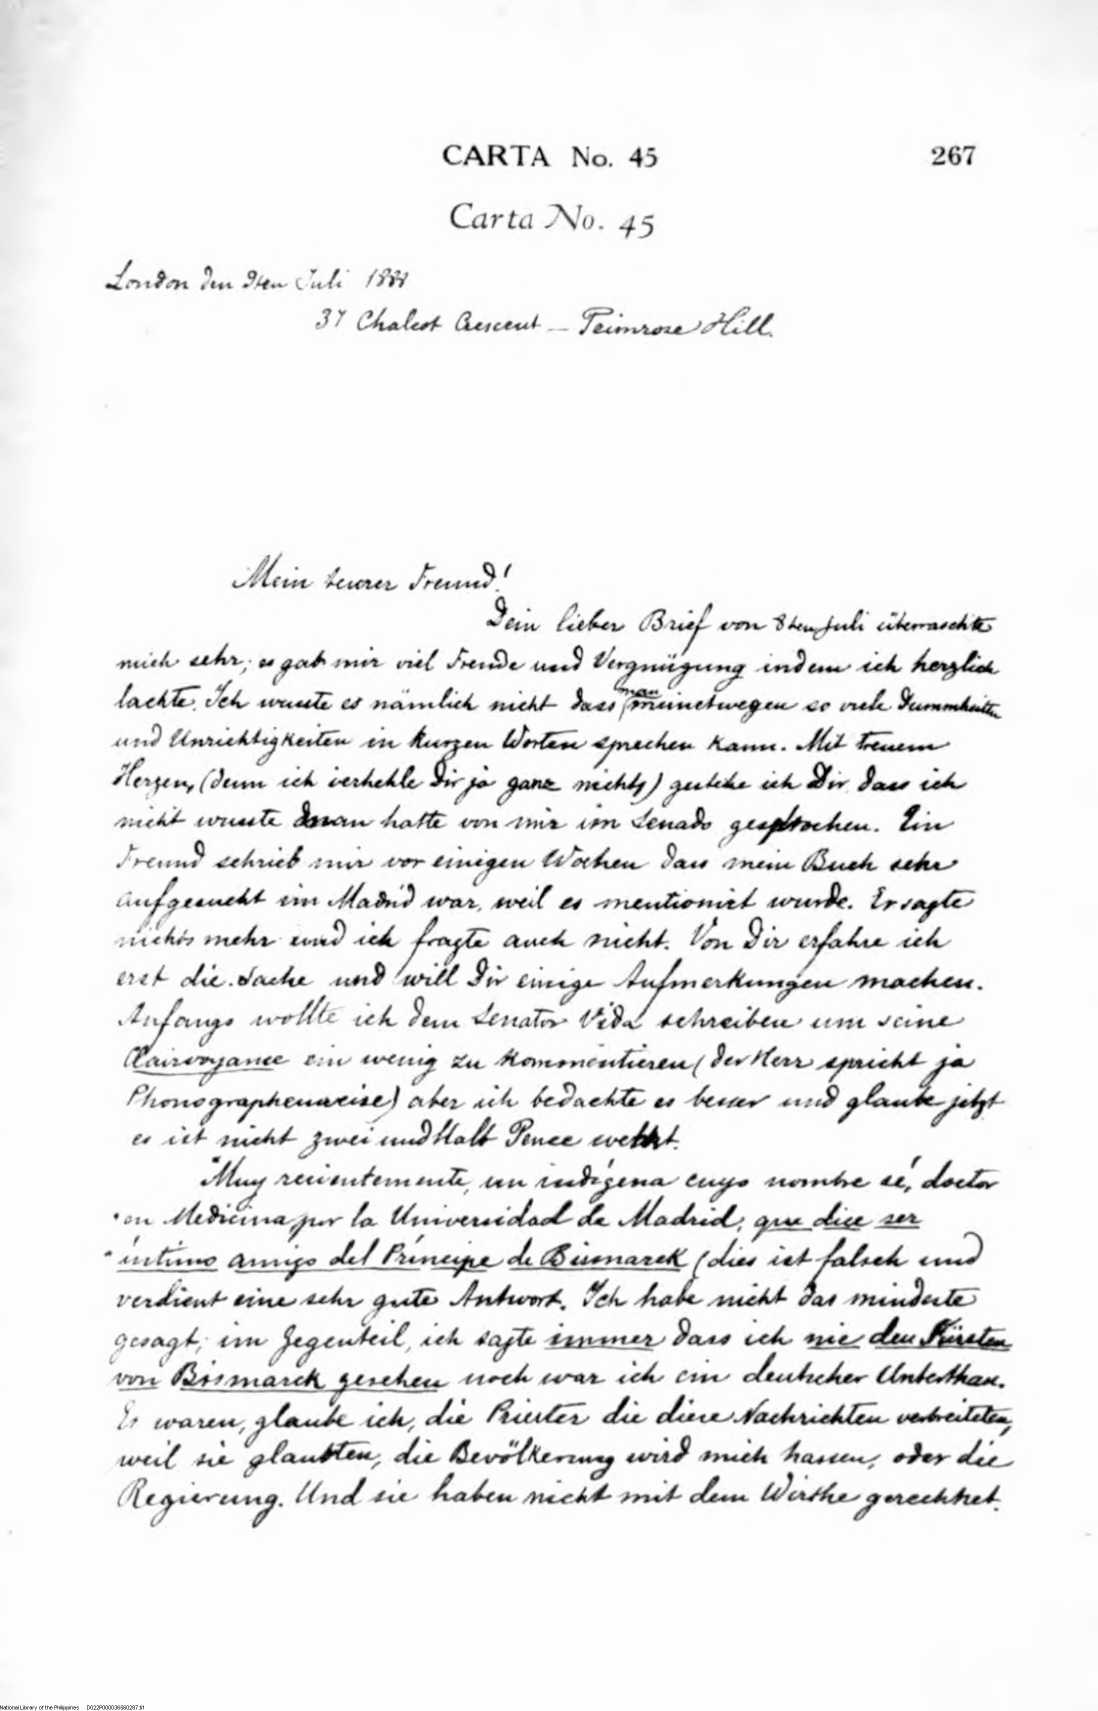 CARTA No. 45 267
Carta No. 45
London den 9ten Juli 1888
37 Chalcot Crescent — Primrose Hill.
Mein teurer Freund!
Dein lieber Brief von 8ten Juli überraschte
mich sehr; es gab mir viel Freude und Vergnügung indem ich herzlich
lachte. Ich wusste es nämlich nicht dass man meinetwegen so viele Dummheiten
und Unrichtigkeiten in kurzen Worten sprechen kann. Mit treuem
Herzen, (denn ich verhehle Dir ja ganz nichts) gestehe ich Dir dass ich
nicht wusste man hatte von mir im Senado gesprochen. Ein
Freund schrieb mir vor einigen Wochen dass mein Buch sehr
aufgesucht im Madrid war, weil es mentionirt wurde. Er sagte
nichts mehr und ich fragte auch nicht. Von Dir erfahre ich
erst die Sache und will Dir einige Aufmerkungen machen.
Anfangs wollte ich dem Senator Vida schreiben um seine
Clairvoyance ein wenig zu kommentieren (der Herr spricht ja
Phonographenweise) aber ich bedachte es besser und glaube jetzt
es ist nicht zwei und Halb Pence wert.
"Muy recientemente, un indígena cuyo nombre sé, doctor
"en Medicina por la Universidad de Madrid, que dice ser
"íntimo amigo del Príncipe de Bismarck (dies ist falsch und
verdient eine sehr gute Antwort. Ich habe nicht das mindeste
gesagt; im Gegenteil, ich sagte immer dass ich nie den Fürsten
von Bismarck gesehen noch war ich ein deutscher Unterthan.
Es waren, glaube ich, die Priester die diese Nachrichten verbreiteten,
weil sie glaubten, die Bevölkerung wird mich hassen, oder die
Regierung. Und sie haben nicht mit dem Wirthe gerechnet.
National Library of the Philippines